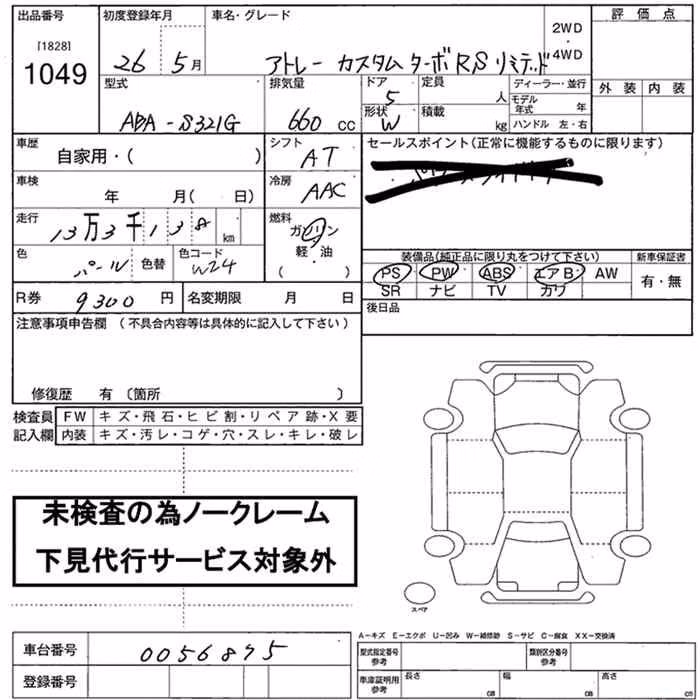 出品番号 初度登録年月 車名・グレード 評価点
[1828]
1049 26 5月 アトレー カスタム ターボRS リミテッド 2WD 4WD
型式 排気量 ドア 定員 ディーラー・並行 外装 内装
ABA-S321G 660 cc 5 人 モデル年式 年
形状 W 積載 kg ハンドル 左・右
車歴 シフト セールスポイント(正常に機能するものに限ります)
自家用・( ) AT
車検 冷房
年 月( 日) AAC
走行 燃料
13万3千138 km ガソリン
色 色替 色コード 軽・油
パール W24 ( )
装備品(純正品に限り丸をつけて下さい) 新車保証書
PS PW ABS エアB AW 有・無
SR ナビ TV カワ
R券 9300円 名変期限 月 日 後日品
注意事項申告欄 (不具合内容等は具体的に記入して下さい)
修復歴 有〔箇所 〕
検査員 FW キズ・飛石・ヒビ割・リペア跡・X要
記入欄 内装 キズ・汚レ・コゲ・穴・スレ・キレ・破レ
未検査の為ノークレーム
下見代行サービス対象外
スペア
A-キズ E-エクボ U-凹み W-補修跡 S-サビ C-腐食 XX-交換済
車台番号 0056875 型式指定番号 参考 類別区分番号 参考
登録番号 車庫証明用 参考 長さ cm 幅 cm 高さ cm